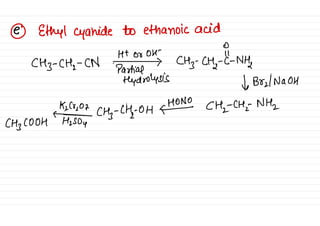 (e) Ethyl cyanide to ethanoic acid
CH3-CH2-CN H+ or OH- Partial Hydrolysis CH3-CH2-C-NH2
O
Br2/NaOH
CH3COOH K2Cr2O7 H2SO4 CH3-CH2-OH HONO CH2-CH2-NH2